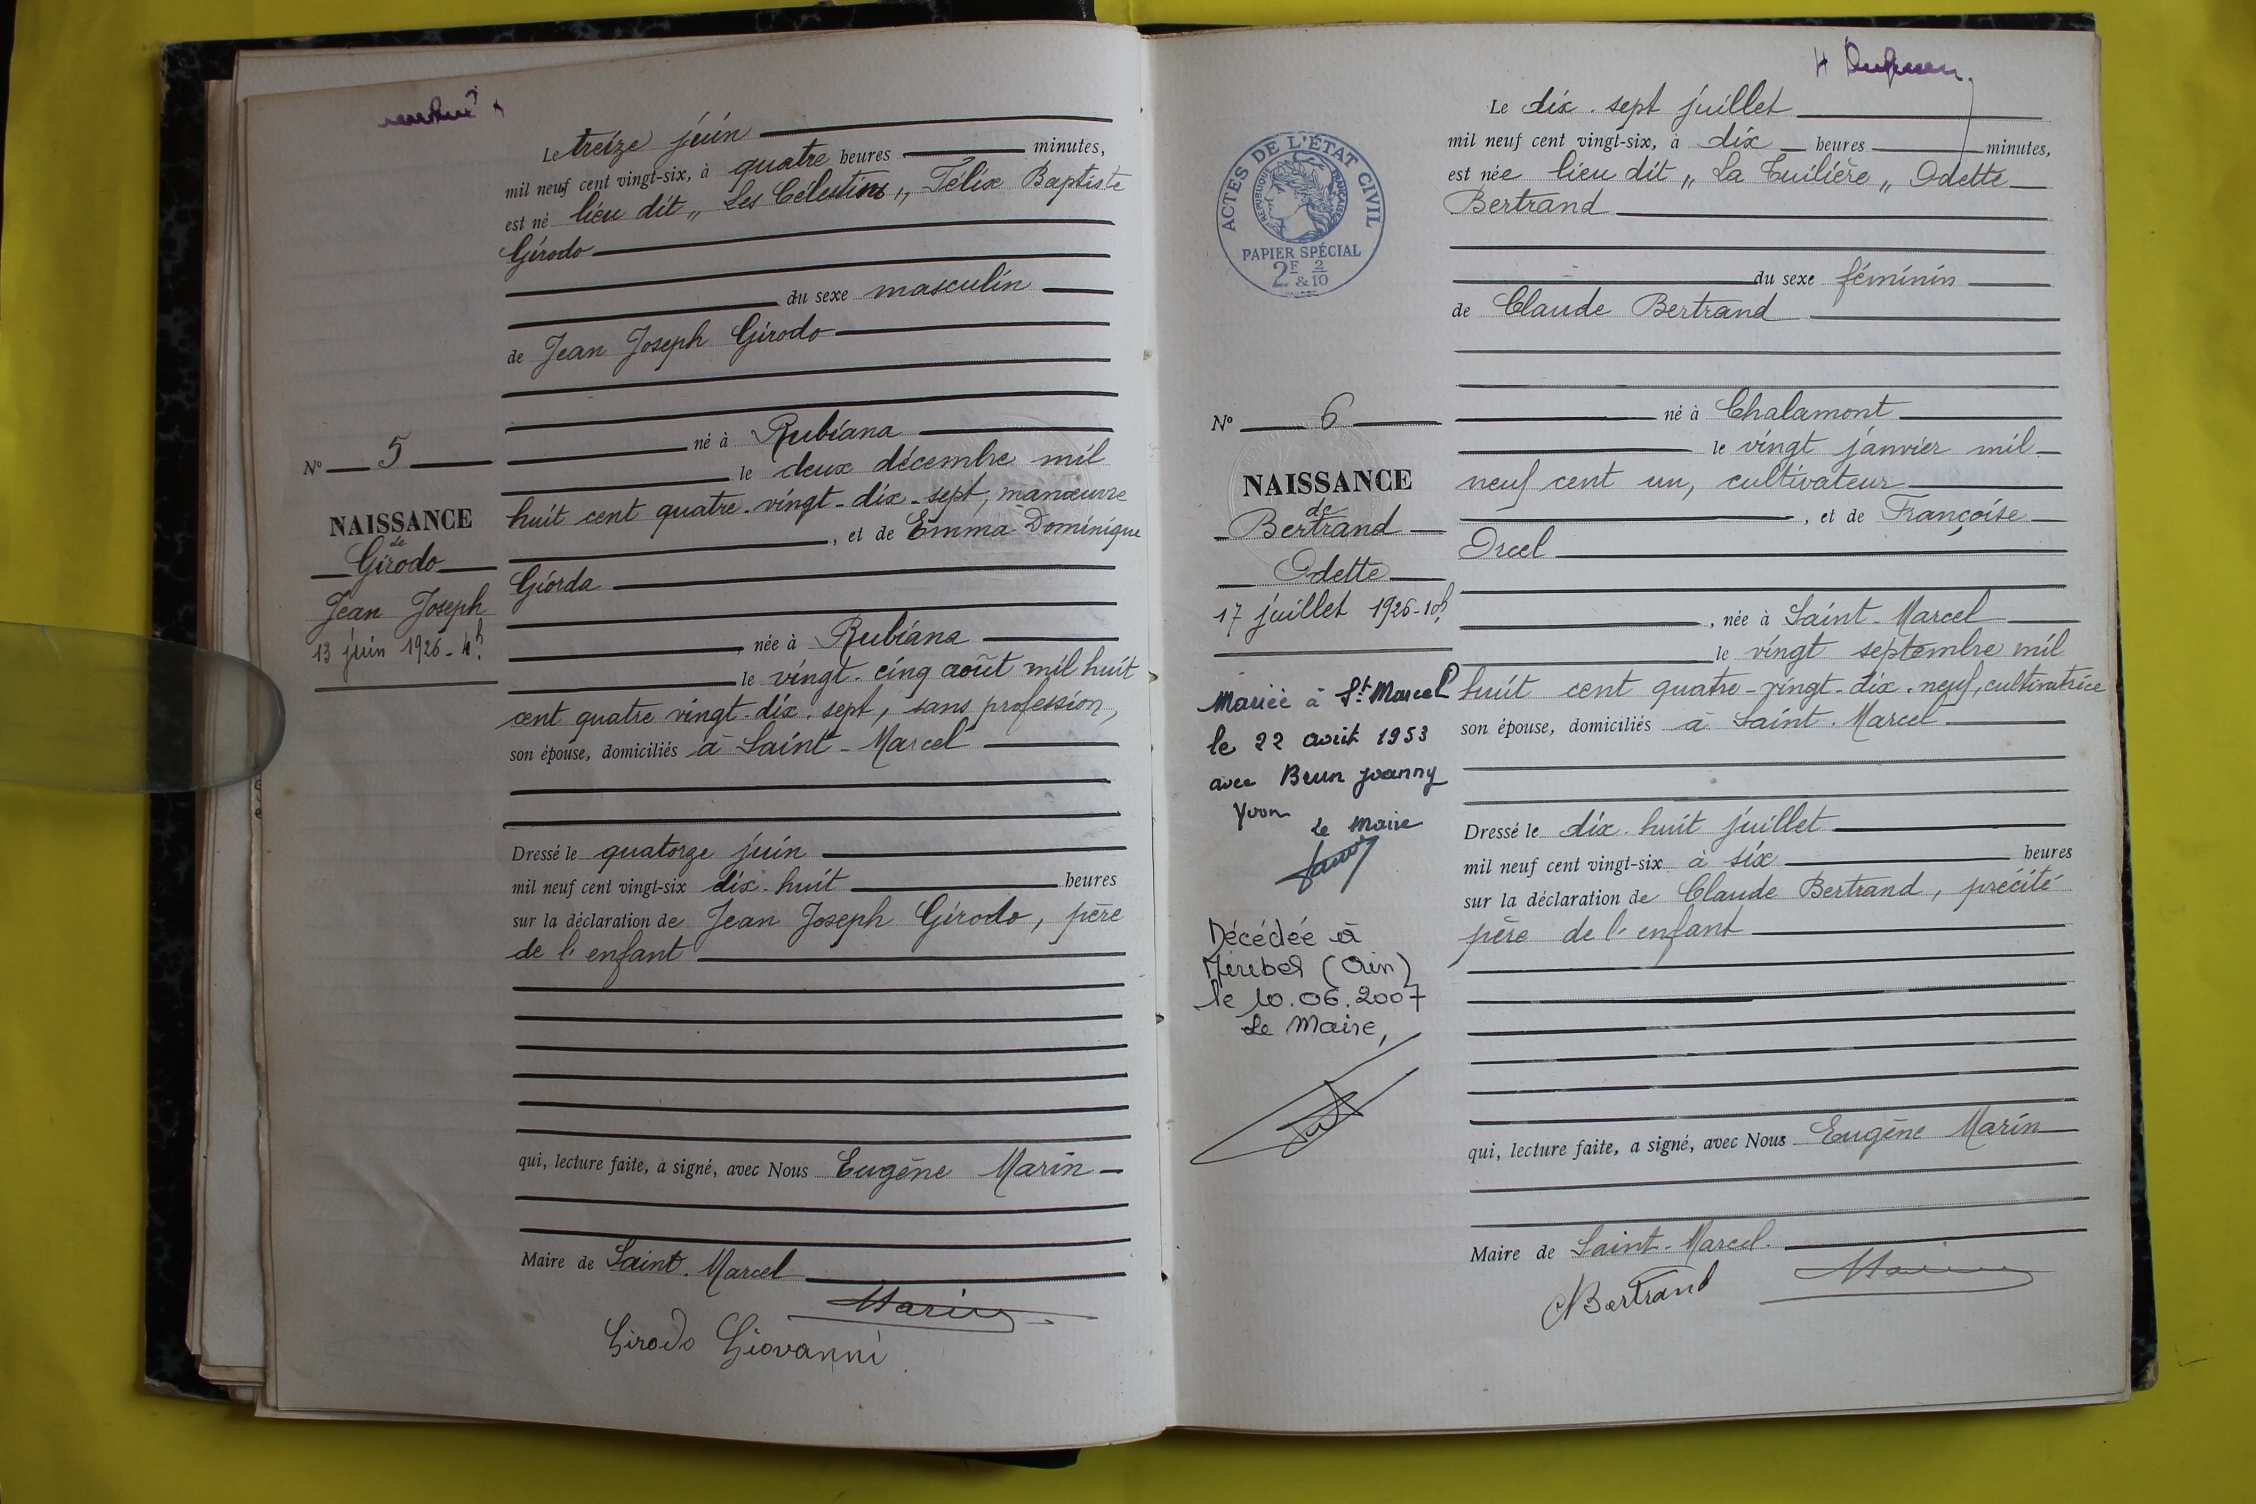 Le treize juin
mil neuf cent vingt-six, à quatre heures minutes,
est né lieu dit „ Les Célestins „ Félix Baptiste
Girodo
du sexe masculin
de Jean Joseph Girodo
né à Rubiana
le deux décembre mil
huit cent quatre-vingt-dix-sept, manœuvre
, et de Emma Dominique
Giorda
, née à Rubiana
le vingt-cinq août mil huit
cent quatre vingt-dix-sept, sans profession,
son épouse, domiciliés à Saint-Marcel
Dressé le quatorze juin
mil neuf cent vingt-six dix-huit heures
sur la déclaration de Jean Joseph Girodo, père
de l'enfant
qui, lecture faite, a signé, avec Nous Eugène Marin
Maire de Saint-Marcel
Marin
Girodo Giovanni
N° 5
NAISSANCE
de
Girodo
Jean Joseph
13 juin 1926 - 4h.
ACTES DE L'ÉTAT CIVIL
RÉPUBLIQUE FRANÇAISE
PAPIER SPÉCIAL
2F & 2/10
N° 6
NAISSANCE
de
Bertrand
Odette
17 juillet 1926-10h.
Mariée à St Marcel
le 22 août 1953
avec Brun Joanny
Yvon
Le Maire
Décédée à
Miribel (Ain)
le 10.06.2007
Le Maire,
Le dix-sept juillet
mil neuf cent vingt-six, à dix heures minutes,
est née lieu dit „ La Tuilière „ Odette
Bertrand
du sexe féminin
de Claude Bertrand
né à Chalamont
le vingt janvier mil
neuf cent un, cultivateur
, et de Françoise
Orcel
, née à Saint-Marcel
le vingt septembre mil
huit cent quatre-vingt-dix-neuf, cultivatrice
son épouse, domiciliés à Saint-Marcel
Dressé le dix-huit juillet
mil neuf cent vingt-six à six heures
sur la déclaration de Claude Bertrand, précité
père de l'enfant
qui, lecture faite, a signé, avec Nous Eugène Marin
Maire de Saint-Marcel.
Marin
Bertrand